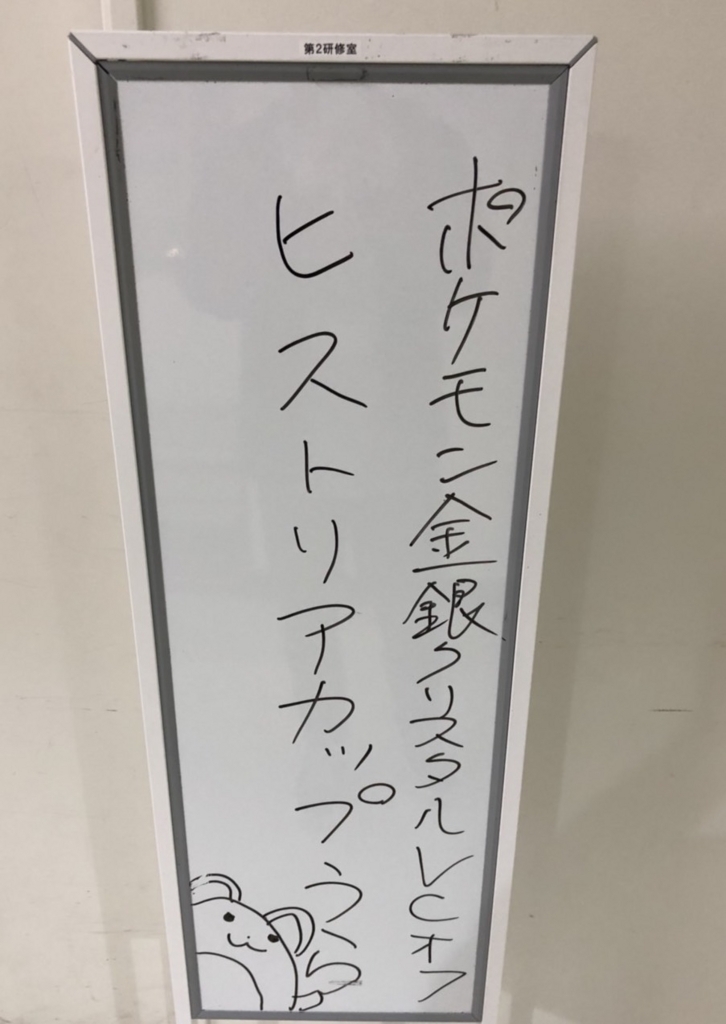 第2研修室
ポケモン金銀クリスタルVCオフ
ヒストリアカップうら